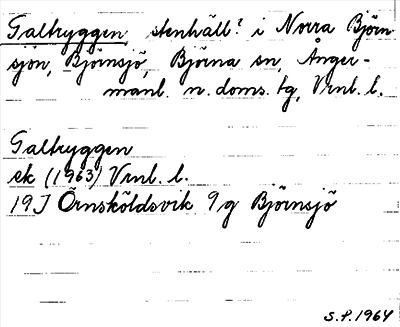 Galtryggen stenhäll? i Norra Björn
sjön, Björnsjö, Björna sn, Ånger-
manl. n. doms. tg, Vrnl. l.
Galtryggen
ek (1963) Vrnl. l.
19J Örnsköldsvik 9g Björnsjö
S.P. 1964